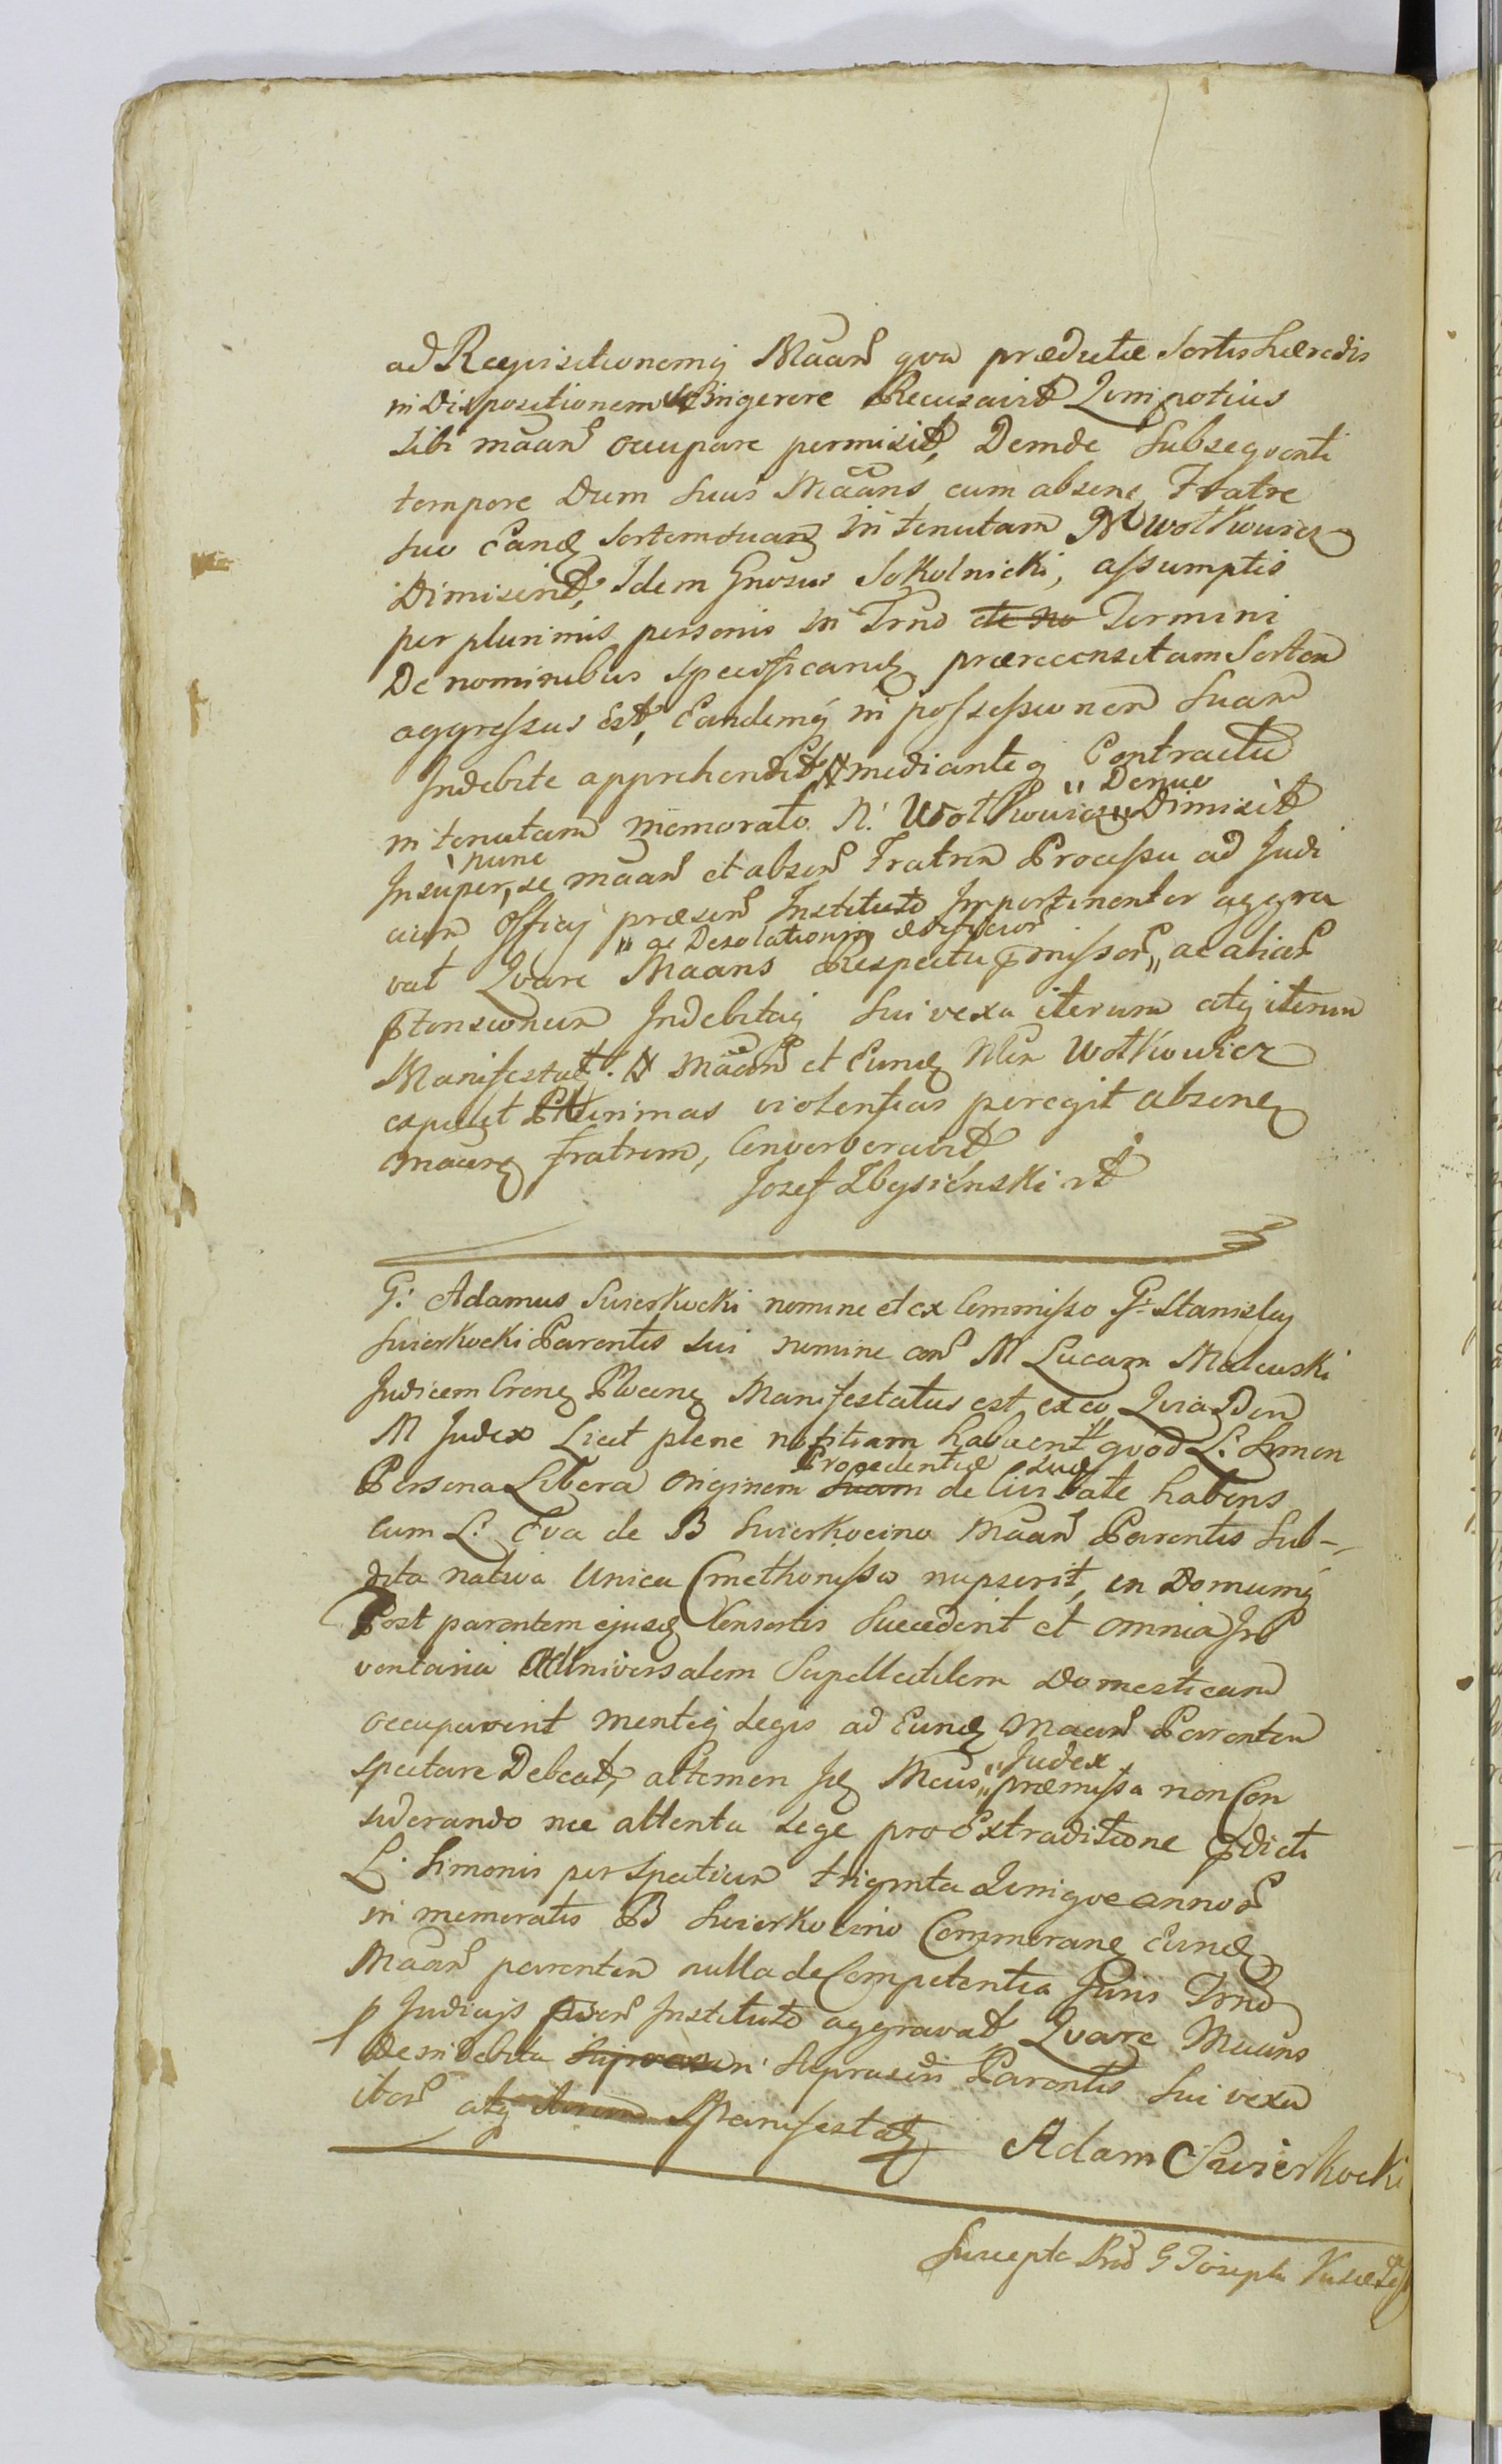 ad Reqvisitionemq Maan qva prædictæ Sortis Hæredis
in Dispositionem se Ingerere Recusavit Qvin potius
sibi maan occupare permisit, Deinde Subseqventi
tempore Dum Suus Maans cum absene Fratre
suo Eand Sortem suam in tenutam M Wołkowicz
Dimiserit, Idem Gnosus Sokolnicki, assumptis
per plurimis personis in Trno de no Termini
De nominibus specificand prærecensitam Sortem
aggressus Est, Eandemq in possessionem Suam
Indebite apprehendit mediante q Contractu
in tenutam memorato N: Wołkowicz " Denuo " Dimisit
Insuper, nunc se maan et absen Fratrem Processu ad Judi
cium Officij præsen Instituto Impertinenter aggra
vat Qvare Maans Respectu pmissor " ac Desolationis ædificior " ac aliar
ptensionum Indebitaq sui vexa iterum atq iterum
Manifestat. # Maan et Eund Wołkowicz
expulit Plurimas violentias peregit absenq
maang fratrem, Converberavit
Jozef Zbysiński
G: Adamus Swierkocki nomine et ex Commisso G: Stanislaj
Swierkocki Parentis sui nomine con M Lucam Malewski
Judicem Crenz Plocenz Manifestatus est ex eo Qvia Dom
M Judex Licet plene notitiam habuerit qvod L: Simon
Persona Libera originem suam Procedentiæ suæ de Civitate habens
cum L: Eva de B Swierkocino Maan Parentis Sub-
dita nativa Unica Cmethonissa nupserit, in Domumq
Post parentem ejusd Consortis Succederit et omnia In
ventaria Universalem Supellectilem Domesticam
occupaverit menteq Legis ad Eund Maan Parentem
spectare Debeat, attamen Id Mcus " Judex " præmissa non Con
siderando nec attenta Lege pro Extraditione pdicti
L: Simonis per Spatium triginta Qvinqve annor
in memoratis B Swierkocino Commoranq Eund
Maan parentem nulla de Competentia Juris Trno
p Judicijs psen Instituto aggravat Qvare Maans
de indebita Supradicti Parentis sui vexa
iter atq iterum Manifestat
Adam Swierkocki
Suscepta G Joseph